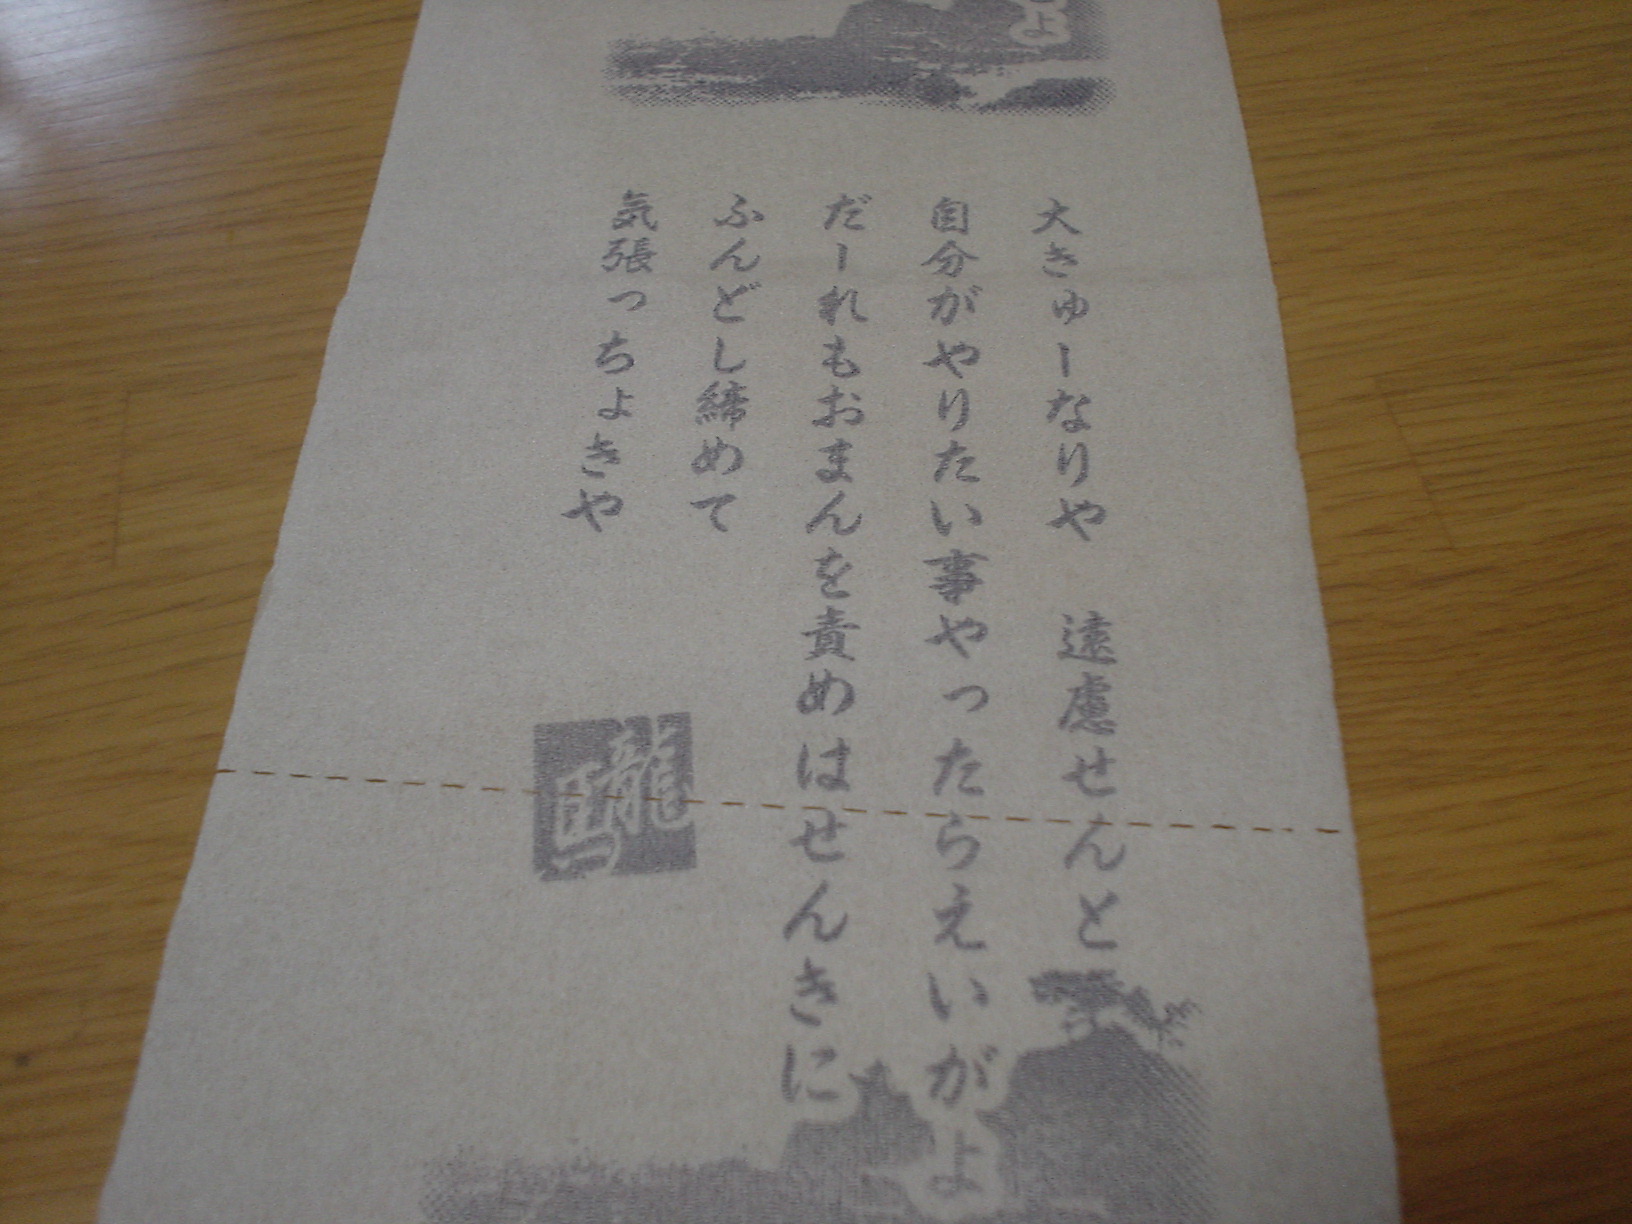 よ
大きゅーなりや 遠慮せんと
自分がやりたい事やったらえいがよ
だーれもおまんを責めはせんきに
ふんどし締めて
気張っちょきや
龍馬